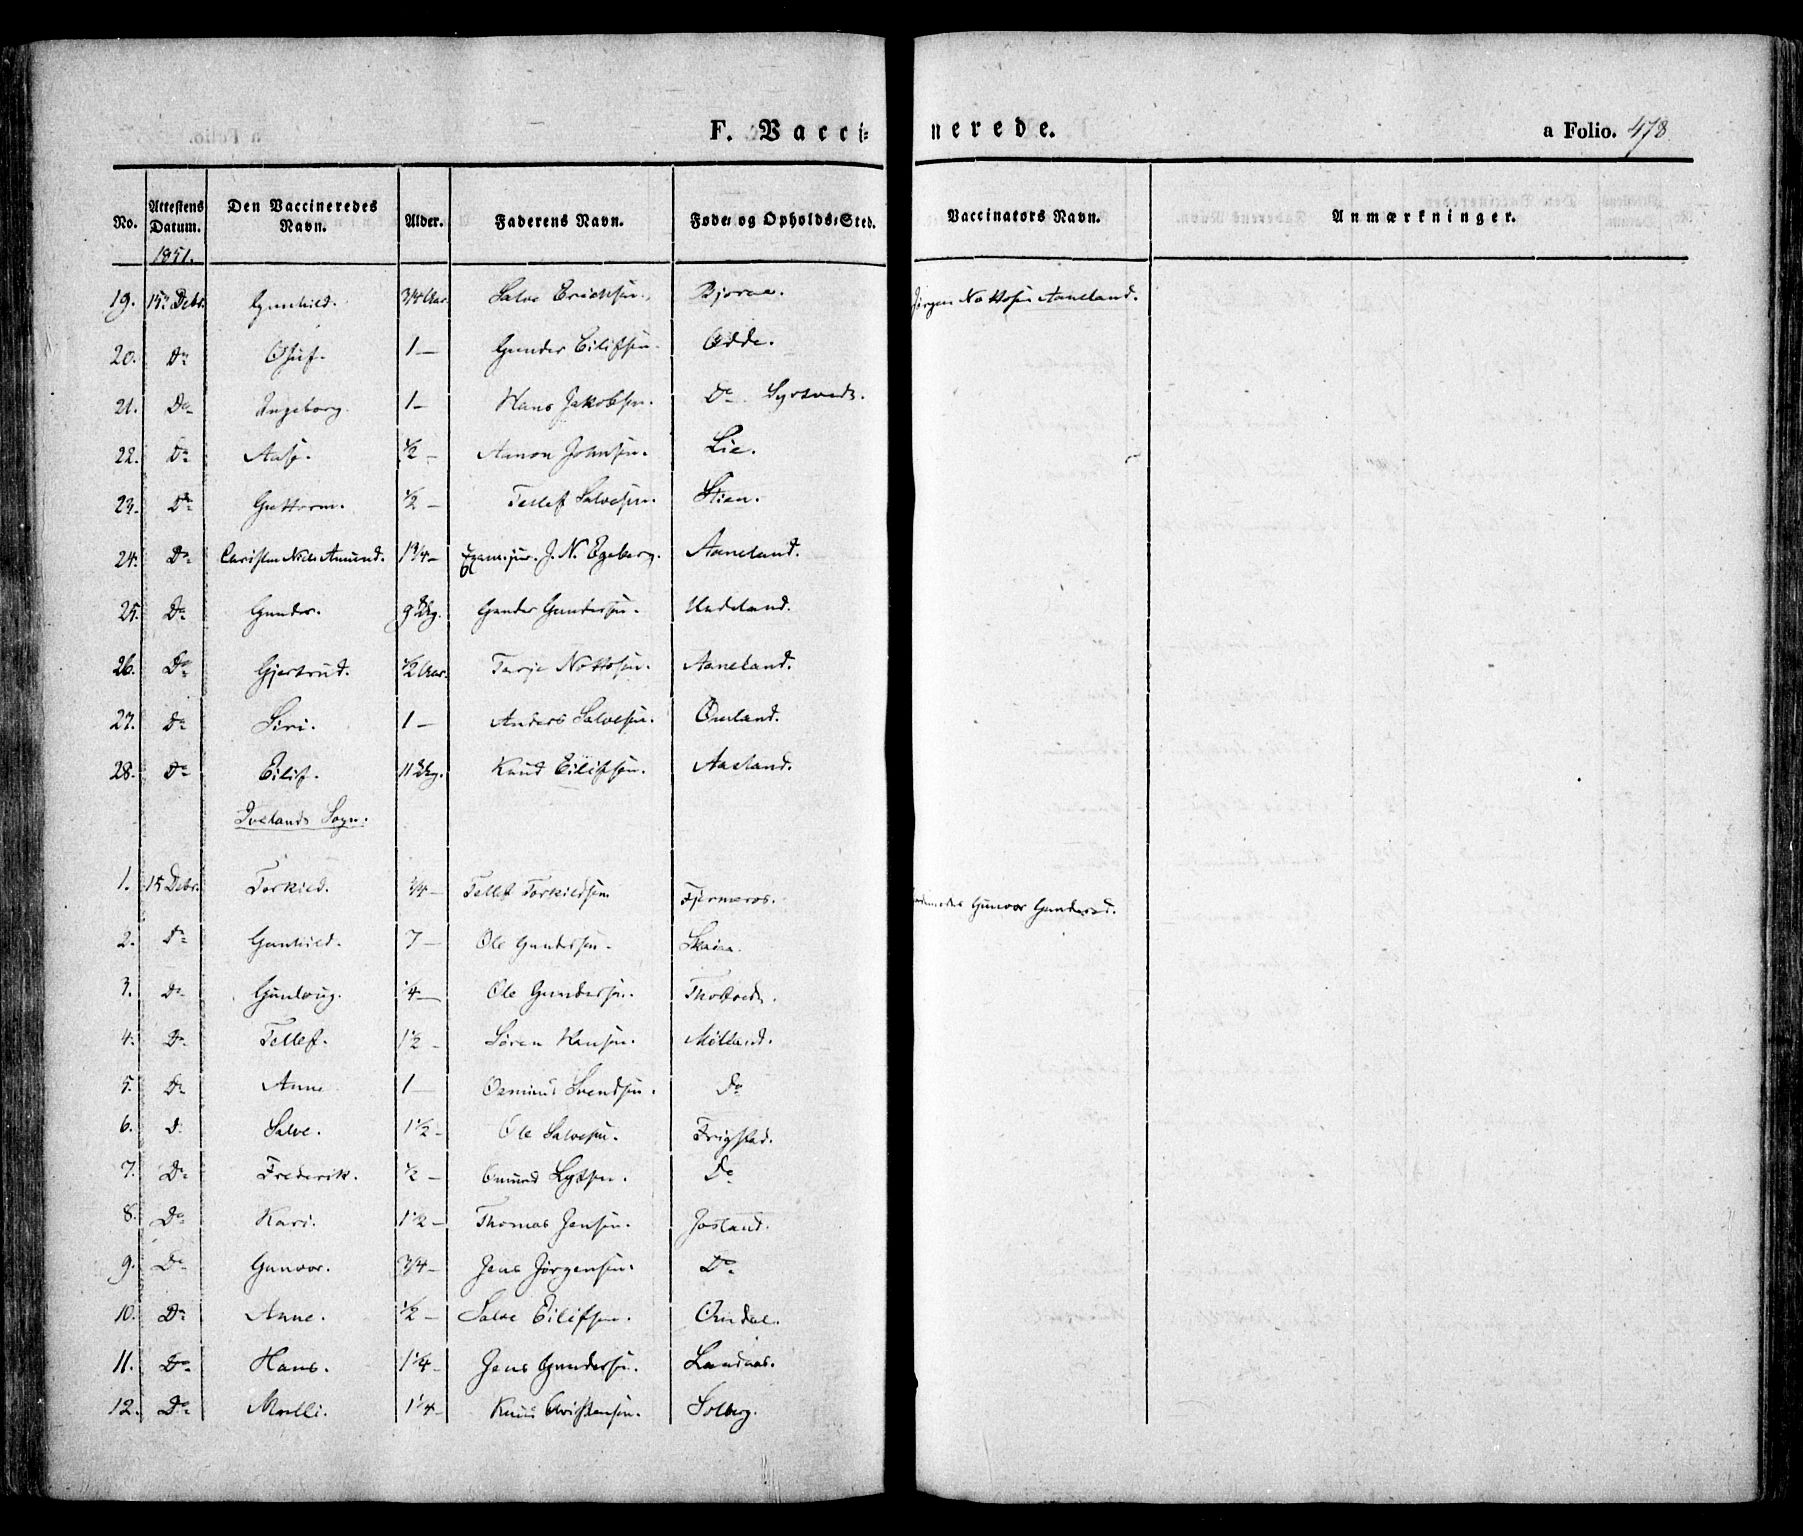 F. Vaccinerede. a Folio. 478
No. Attestens Datum. Den Vaccineredes Navn. Alder. Faderens Navn. Føde- og Opholds-Sted. Vaccinators Navn. Anmærkninger.
1851.
19. 15de Debr. Gunhild. 3/4 Aar. Salve Erichsen. Bjoraa. Jørgen Nottosen Aaneland.
20. Do Osuf. 1 — Gunder Eilifsen. Odde.
21. Do Ingeborg. 1 — Hans Jakobsen. Do Syrtveds.
22. Do Aase. 1/2 — Aanon Johnsen. Lie.
23. Do Guttorm. 1/2 — Tellef Salvesen. Stien.
24. Do Christen Niels Amund. 1 3/4 — Exam. jur. J. N. Egeberg. Aaneland.
25. Do Gunder. 9 Gunder Gundersen. Uadeland.
26. Do Gjertrud. 1/2 Aar. Tarje Nottosen. Aaneland.
27. Do Siri. 1 — Anders Salvesen. Omland.
28. Do Eilif. 11 Knud Eilifsen. Aasland.
Ivelands Sogn.
1. 15 Debr. Torkild. 3/4 — Tellef Torkildsen. Fjermeros. Gunvor Gundersd.
2. Do Gunhild. 7 — Ole Gundersen. Skaiaa.
3. Do Gunloug. 1/4 — Ole Gundersen. Thortveds.
4. Do Tellef. 1 1/2 — Søren Hansen. Mølland.
5. Do Anne 1 — Osmund Svendsen. Do
6. D Salve. 1 1/2 — Ole Salvesen. Frigstad.
7. Do Frederik. 1/2 — Omund Lydsen. Do
8. Do Kari. 1 1/2 — Thomas Jensen. Josland.
9. Do Gunvor. 3/4 — Jens Jørgensen. Do
10. Do Anne. 1/2 — Salve Eilifsen. Omdal.
11. Do Hans. 1 1/4 — Jens Gundersen. Landaas.
12. Do Malli. 1 1/4 — Knud Christensen. Solberg.